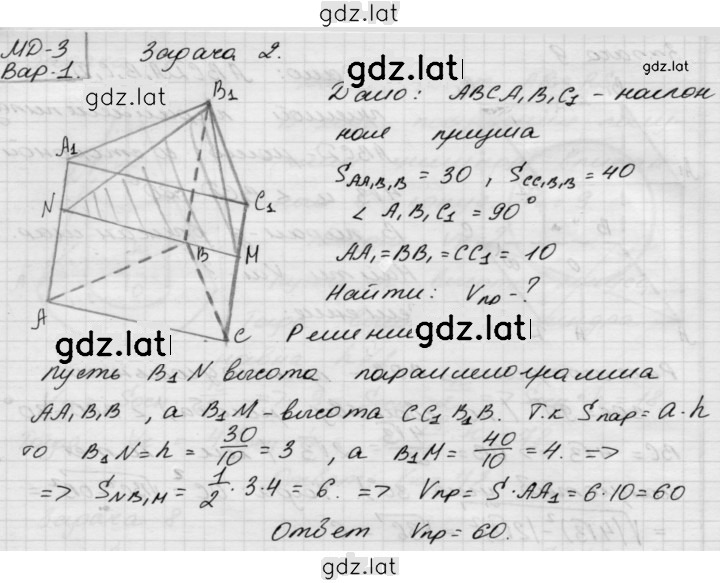 gdz.lat
МД-3
Вар-1.
Задача 2.
gdz.lat
gdz.lat
gdz.lat
Дано: ABCA₁B₁C₁ - наклон
ная призма
S AA₁B₁B = 30, S CC₁B₁B = 40
∠ A₁B₁C₁ = 90°
AA₁ = BB₁ = CC₁ = 10
Найти: Vпр - ?
B₁
A₁
N
C₁
B
M
A
C
gdz.lat
Решение
gdz.lat
пусть B₁N высота параллелограмма
AA₁B₁B, а B₁M - высота CC₁B₁B. Т.к Sпар = a·h
то B₁N = h = 30/10 = 3, а B₁M = 40/10 = 4. =>
=> S NB₁M = 1/2 · 3·4 = 6. => Vпр = S·AA₁ = 6·10 = 60
Ответ Vпр = 60.
gdz.lat